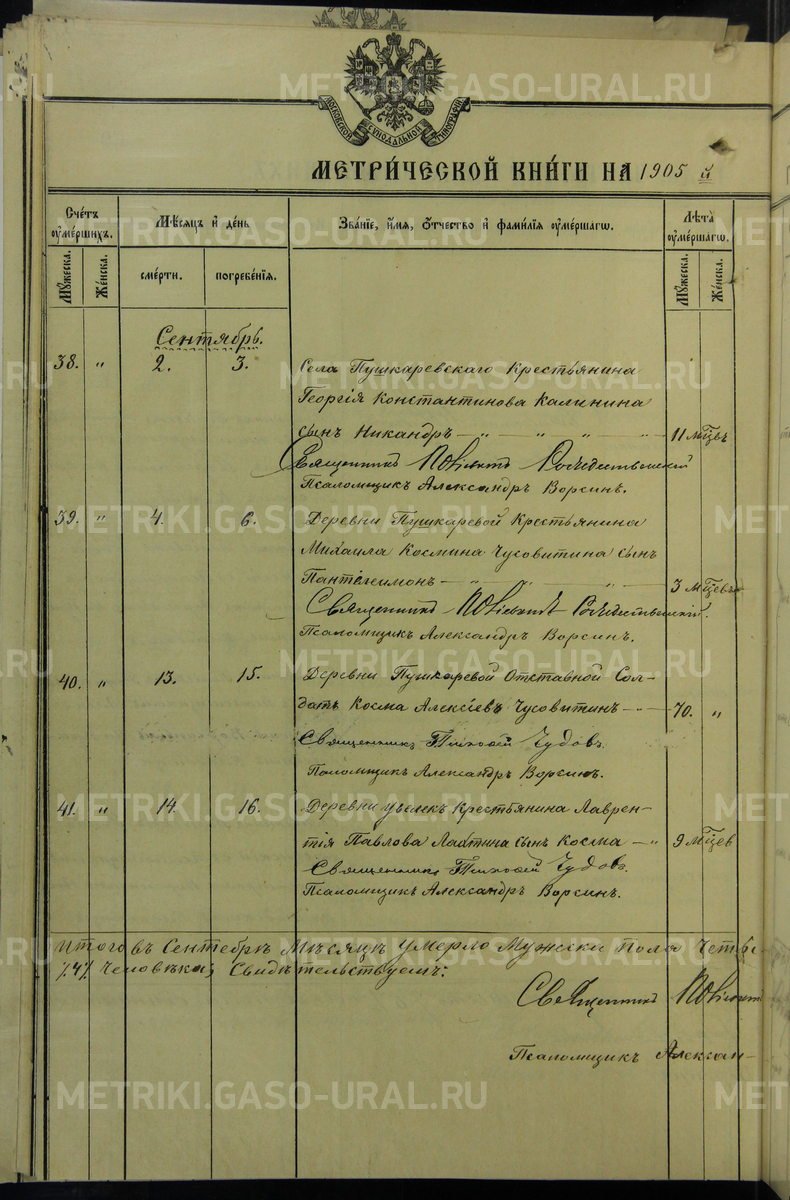 МОСКОВСКОЙ СѴНОДАЛЬНОЙ ТИПОГРАФІИ
МЕТРИ́ЧЕСКОЙ КНИ́ГИ НА 1905 й
Сче́тъ оумéршихъ.
Мѣ́сяцъ и де́нь
Зва́нїе, и́мя, ѻ́тчество и фами́лїя оумéршагѡ.
Лѣ́та оумéршагѡ.
Мꙋ́жеска.
Же́нска.
сме́рти.
погребе́нїя.
Мꙋ́жеска.
Же́нска.
Сентябрь.
38. " 2. 3. Села Пушкаревскаго Крестьянина
Георгія Константинова Калинина
сынъ Никандръ — " — " — " — " — 11 мѣцевъ
Священникъ Рождественскій
Псаломщикъ Александръ Ворсинъ.
39. " 4. 6. Деревни Пушкаревой Крестьянина
Михаила Космина Чусовитина сынъ
Пантелеимонъ — " — " — " — 3 мѣцевъ
Священникъ Рождественскій.
Псаломщикъ Александръ Ворсинъ.
40. " 13. 15. Деревни Пушкаревой Отставной Сол-
датъ Косма Алексіевъ Чусовитинъ — " — 70. "
Священникъ Тихонъ Чудовъ
Псаломщикъ Александръ Ворсинъ.
41. " 14. 16. Деревни Крестьянина Лаврен-
тія Павлова Лаптина сынъ Косма — " 9 мѣцев
Священникъ Чудовъ.
Псаломщикъ Александръ Ворсинъ.
Итого въ Сентебрѣ Мѣсяцѣ умерло Мужски Пола Четы-
/4/ Человѣка, Свидѣтельствуемъ:
Священникъ
Псаломщикъ Алексан-
METRIKI.GASO-URAL.RU